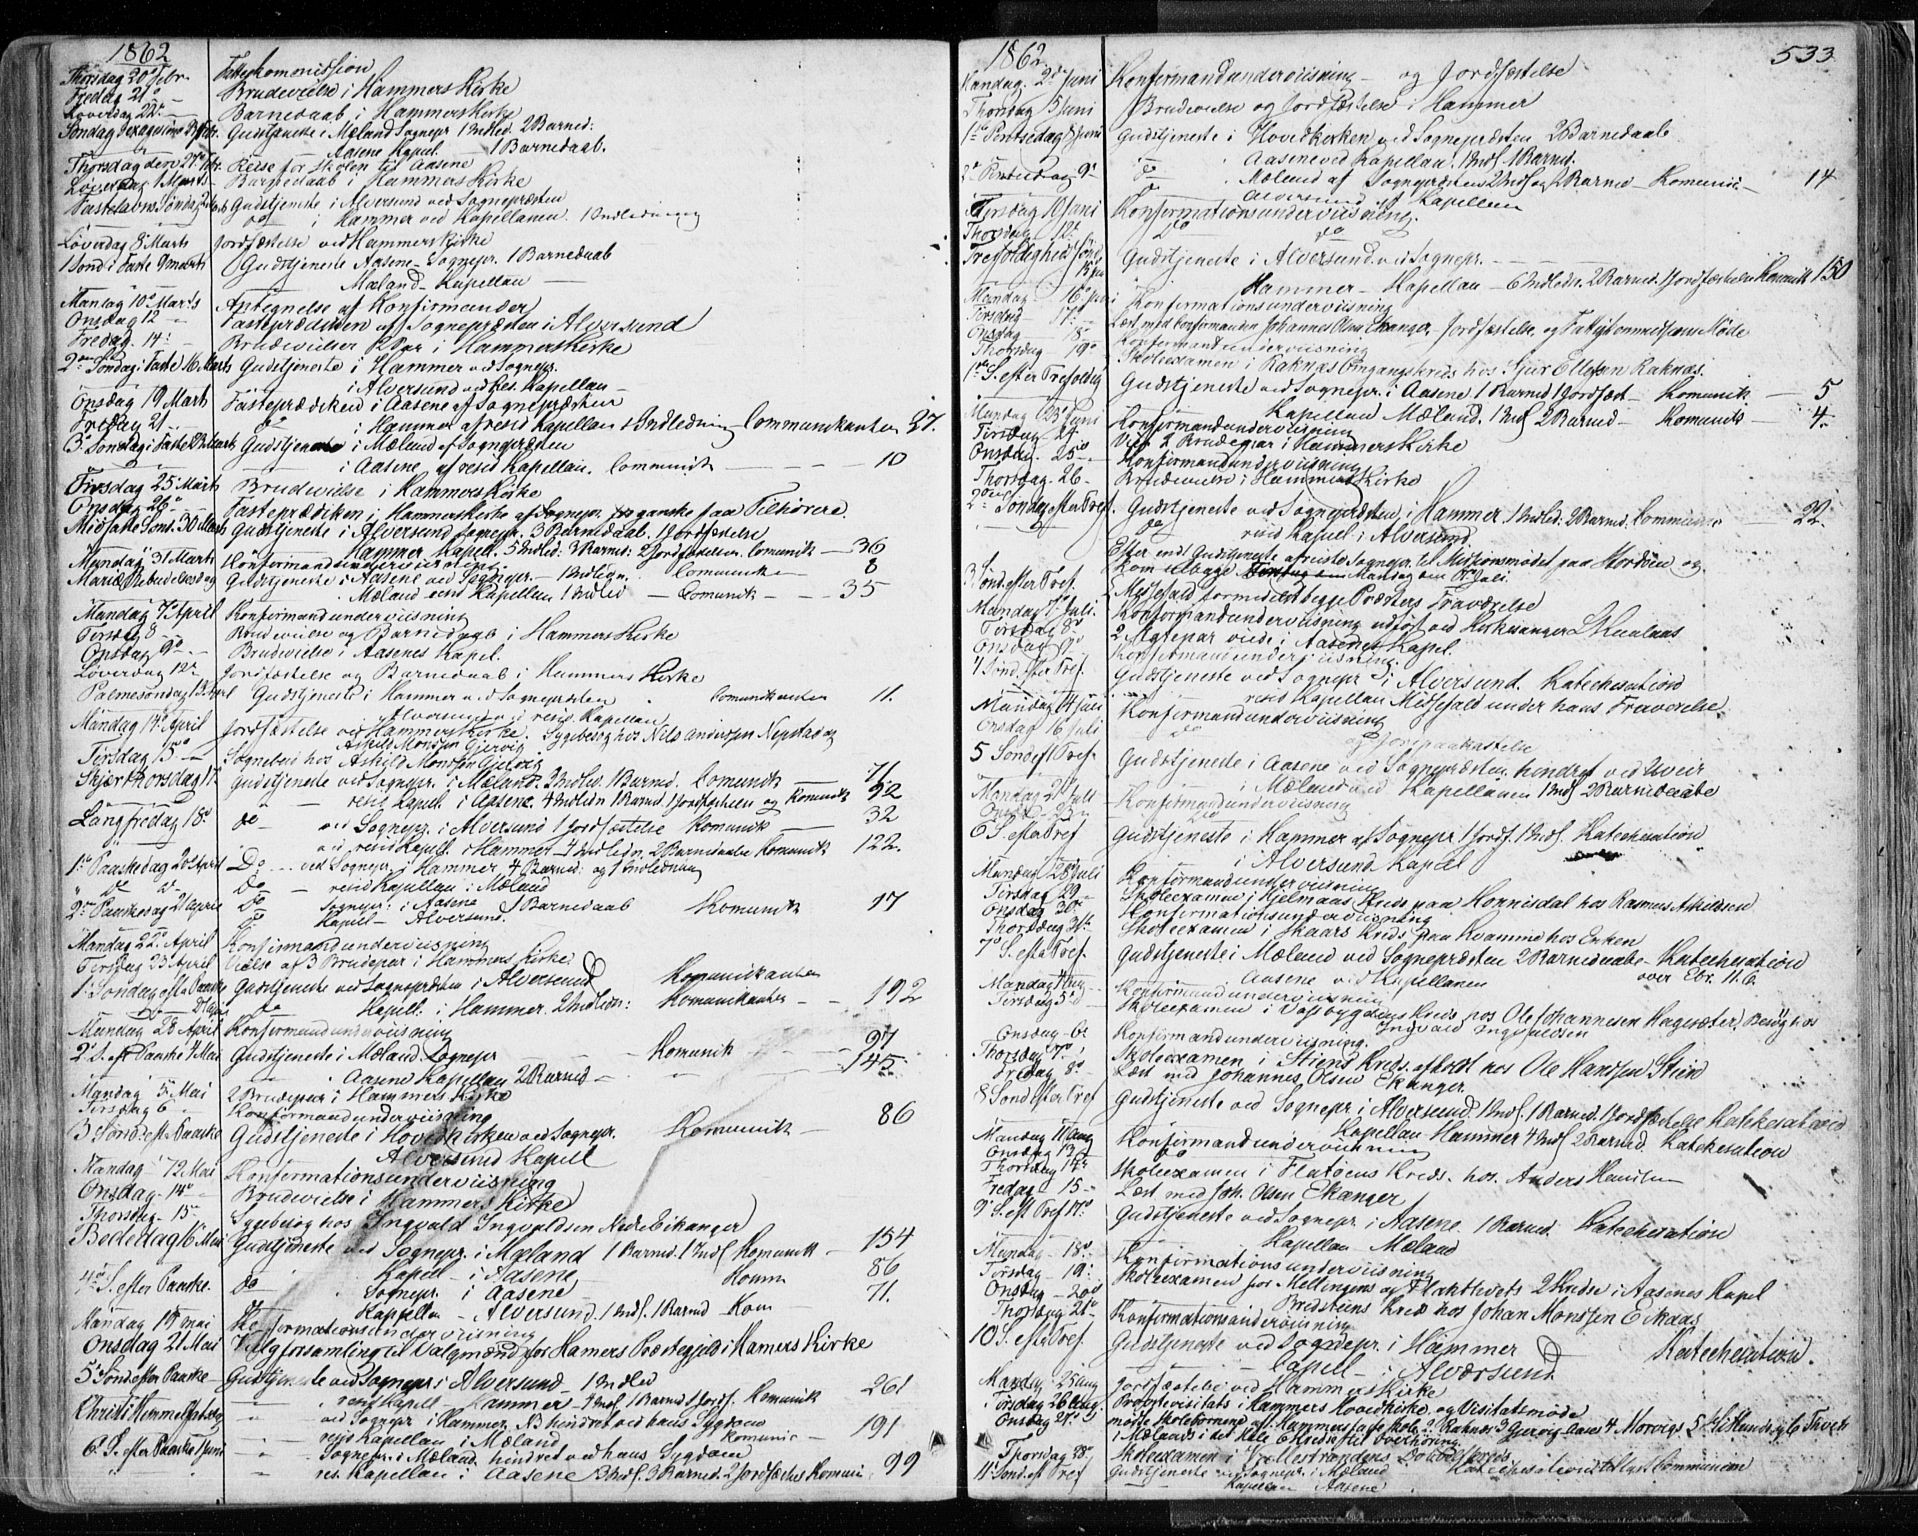 1862
Thorsdag 20de Febr. Fattigkommission
Fredag 21de — Brudevielse i Hammers Kirke
Løverdag 22de — Barnedaab i Hammers Kirke
Gudstjeneste i Mæland Sognepr. 1 Indled. 2 Barned:
Aasene Kapel. — 1 Barnedaab.
Thorsdag den 27de Febr. Reise for Skolen til Aasene
Løverdag 1 Marts Barnedaab i Hammers Kirke
Gudstjeneste i Alversund ved Sognepræsten
do i Hammer ved Kapellanen 1 Indledning
Løverdag 8 Marts Jordfæstelse ved Hammers Kirke
1 Sønd i Faste 9 Marts Gudstjeneste Aasene — Sognepr. 1 Barnedaab
Mæland — Kapellan —
Mandag 10de Marts Antegnelse af Konfirmander
Onsdag 12 — Fasteprædiken af Sognepræsten i Alversund
Fredag 14: Brudevielser 2 Par i Hammers Kirke
2den Søndag i Faste 16 Marts Gudstjeneste i Hammer ved Sognepr.
i Alversund ved Res. Kapellan —
Onsdag 19 Marts Fasteprædiken i Aasene af Sognepræsten
Fredag 21 — do i Hammer af resid Kapellan 1 Indledning Communikanter 27.
Gudstjeneste i Mæland af Sognepræsten
i Aasene af resid Kapellan. Communik — 10
Tirsdag 25 Marts Brudevielse i Hammers Kirke
Onsdag 26de Fasteprædiken i Hammers Kirke af Sognepr. for ganske faa Tilhørere
Midfaste Sønd. 30 Marts Gudstjeneste i Alversund Sognepr. 3 Barnedaab. 1 Jordfæstelse
Hammer Kapell. 5 Indled. 3 Barned. 2 Jordfæstelser. Comunik — 36
Mandag 31 Marts Konfirmandunderviisning
Mariæ Bebudelsesdag Gudstjeneste i Aasene ved Sognepr. — 1 Indledn. Comunik — 8
Mæland resid Kapellan 1 Indled — Comunik — 35
Mandag 7de April Konfirmandunderviisning
Tirsdag 8 — Brudevielse og Barnedaab i Hammers Kirke
Onsdag 9de — Brudevielse i Aasenes Kapel.
Løverdag 12te Jordfæstelse og Barnedaab i Hammers Kirke
Palmesøndag 13 April Gudstjeneste i Hammer ved Sognepræsten Comunikanter 11.
Alversund ved resid Kapellan
Mandag 14de April Jordfæstelse ved Hammers Kirke. Sygebesøg hos Nils Andersen Nepstadøg
Askild Monsen Gjervig
Tirsdag 15 — Sognebud hos Askild Monsen Gjervig
Skjærthorsdag 17. Gudstjeneste ved Sognepr. i Mæland. 3 Indled. 1 Barned. Comunik — 71
resid Kapel. i Aasene. 4 Indledn 1 Barned. 1 Jordfæstelse og Komunik 52
Langfredag 18de do — ved Sognepr. i Alversund 1 Jordfæstelse Komunik — 32
ved resid Kapell. i Hammer 4 Indledn. 2 Barnedaabe Komunik 122.
1ste Paaskedag 20 April Do ... ved Sognepr. i Hammer, 4 Barned: og 1 Indledning
do do do — resid Kapellan i Mæland
2den Paaskedag 21 April do Sognepr. i Aasene 1 Barnedaab Komunik 17
do Kapell — Alversund.
Mandag 22de April Konfirmandunderviisning
Tirsdag 23 April Vielse af 3 Brudepar i Hammers Kirke
1 Søndag efter Paaske Gudstjeneste ved Sognepræsten i Alversund Komunikanter
do Kapell. i Hammer. 2 Indledn: Komunikanter — 192
Mandag 28 April Konfirmandunderviisning
2d S. eft Paaske 4 Mai Gudstjeneste i Mæland. Sognepr Komunik — 97
Aasene Kapellan 2 Barned — 145
Mandag 5 Mai 2 Brudepar i Hammers Kirke
Tirsdag 6 Konfirmandunderviisning
3 Sønd. eft. Paaske Gudstjeneste i Hovedkirken ved Sognepr. Komunik — 86
Alversund Kapell
Mandag 12 Mai Konfirmationsunderviisning
Onsdag 14de Brudevielse i Hammers Kirke
Thorsdag 15 — Sygebesøg hos Ingvald Ingvaldsen Nedre Eikanger
Bededag 16 Mai Gudstjeneste ved Sognepr. i Mæland 1 Barned. 1 Indl Komunik — 154
do Kapell — i Aasene — 86
4de S. efter Paaske. do Sognepr. i Aasene Komm 71.
Kapellan — Alversund. 1 Indl. 1 Barned — Kom
Mandag 19 mai Konfirmationsunderviisning
Onsdag 21 Mai Valgforsamling til Valgmænd for Hamers Præstegjeld i Hamers Kirke
5te Sønd efter Paaske — Gudstjeneste ved Sognepr i Alversund — 1 Indled
resid Kapell — Hammer — 4 Indl. 1 Barned 1 Jordf. Komunik 261
Christi Himmelfartsdag ved Sognepr i Hammer. NB hindret ved hans Sygdom
resid Kapellan i Mæland Komunic — 191
6 S. efter Paaske 1 Juni Sognepr. i Mæland. hindret ved hans Sygdom
res. Kapellan i Aasene 3 Indl. 3 Barned. 2 Jordfæstes Komuni 99
1862 533
Mandag 2d Juni Konfirmandunderviisning — og Jordfæstelse
Thorsdag 5 Juni Brudevielse og Jordfæstelse i Hammer
1ste Pintsedag 8 Juni Gudstjeneste i Hovedkirken ved Sognepræsten 2 Barnedaab
do Aasene ved Kapellan. 1 Indl. 1 Barned.
2d Pintsedag 9de do Mæland af Sognepræsten 2 Indl og 2 Barned — Komunic — 14
Alversund af Kapellan
Tirsdag 10 Juni Konfirmationsunderviisning.
Thorsdag 12te do do
Gudstjeneste i Alversund ved Sognepr. —
Hammer — Kapellan — 6 Indledn. 2 Barned. 1 Jordfæstelse Komunik 150
Mandag 16de Juni Konfirmationsunderviisning
Tirsdag 17de — Læst med Confirmanden Johannes Olsen Ekanger. Jordfæstelse, og Fattigkommissions Møde
Onsdag 18de Konfirmandunderviisning
Thorsdag 19de Skoleexamen i Raknæs Omgangskreds hos Sjur Ellefsen Raknæs.
1ste S. efter Trefoldig Gudstjeneste ved Sognepr. i Aasene 1 Barned 1 Jordfæst — Komunik — 5
Kapellan Mæland. 1 Indl 2 Barned — Komunik — 4.
Mandag 23 Juni Konfirmandunderviisning
Tirsdag 24 Viet 2 Brudepar i Hammers Kirke
Onsdag 25de Konfirmandunderviisning
Thorsdag 26 — Brudevielse i Hammers Kirke
2den Søndag efter Tref. Gudstjeneste ved Sognepræsten i Hammer 1 Indled. 2 Barned. Communic 22.
do resid Kapell i Alversund
Efter endt Gudstjeneste afreiste Sognepr. til Missionsmødet paa Stordøen og
kom tilbage Mandag den 7de Juli.
3 Sønd. efter Tref. Messefald formedelst begge Præsters Fraværelse
Mandag 7de Juli. Konfirmandunderviisning udført ved Kirkesanger
Tirsdag 8de 2 Ægtepar viede i Aasenes Kapel.
Onsdag 9de Konfirmandunderviisning.
4 Sønd. efter Tref. Gudstjeneste ved Sognepr. i Alversund. Katechesation
resid Kapellan Messefald under hans Fraværelse.
Mandag 14 Juli Konfirmandunderviisning
Onsdag 16 Juli do
5 Sønd eft Tref Gudstjeneste i Aasene ved Sognepræsten hindret ved Uveir
i Mæland ved Kapellanen 1 Indl 2 Barnedaabe
Mandag 21 Juli Konfirmandunderviisning
Onsdag 23 — do
6 S. efter Tref Gudstjeneste i Hammer af Sognepr. 1 Jordf. 1 Indl. Katechesation
i Alversund Kapell
Mandag 28 Juli Konfirmandunderviisning
Tirsdag 29 Skoleexamen i Hjelmaas Kreds paa Hornisdal hos Rasmus Askildsen
Onsdag 30te Konfirmationsunderviisning
Thorsdag 31te Skoleexamen i Skaars Kreds paa Kvamme hos Enken
7de S. efter Tref. Gudstjeneste i Mæland ved Sognepræsten 2 Barnedaabe — Katechesation
Aasene ved Kapellanen over Ebr. 11. 6.
Mandag 4 Aug Konfirmandunderviisning
Tirsdag 5te — Skoleexamen i Vasbygdens Kreds hos Ole Johannesen Hagesæter, Besøg hos
Ingvald Ingvaldsen
Onsdag 6te Konfirmandunderviisning.
Thorsdag 7de, Skoleexamen i Steens Kreds, afholdt hos Ole Hansen Stein
Fredag 8de Læst med Johannes Olsen Ekanger.
8 Sønd efter Tref Gudstjeneste ved Sognepr. i Alversund. 1 Indl. 1 Barned. 1 Jordfæstelse Katechesation
Kapellan Hammer 4 Indl. 2 Barned. Katechesation
Mandag 11 Aug Konfirmandunderviisning
Onsdag 13 do
Thorsdag 14de Skoleexamen i Flatøens Kreds. hos. Anders
Fredag — 15 — Læst med Joh. Olsen Ekanger
9de S. eft Tref 17de. Gudstjeneste ved Sognepr. i Aasene. 1 Barned. Katechesation
Kapellan Mæland
Mandag — 18de Konfirmationsunderviisning
Tirsdag — 19: Skoleexamen for Mellingens og 2 Kredse i Aasenes Kapel
Onsdag — 20de Bredsteins Kreds hos Johan Monssen Eikaas
Thorsdag 21de Konfirmationsunderviisning
10 S. efter Tref. Gudstjeneste ved Sognepr. i Hammer Katechesation.
Kapell — i Alversund
Mandag 25 aug Jordfæstelse ved Hammers Kirke
Tirsdag 26 aug. Provstevisitats i Hammers Hovedkirke, og Visitatsmøde
Onsdag 27de mødte Skolebørnene af Hammers faste Skole, 2 Raknes 3 Gjervig Aaser 4 Morvigs 5 og 6 Tveit
i Mælands i det hele 6 Kredse til Overhøring.
Thorsdag 28de Skoleexamen i
11 Sønd. eft Tref Gudstjeneste ved Sognepr. i Mæland Katechesation
Kapellan Aasene